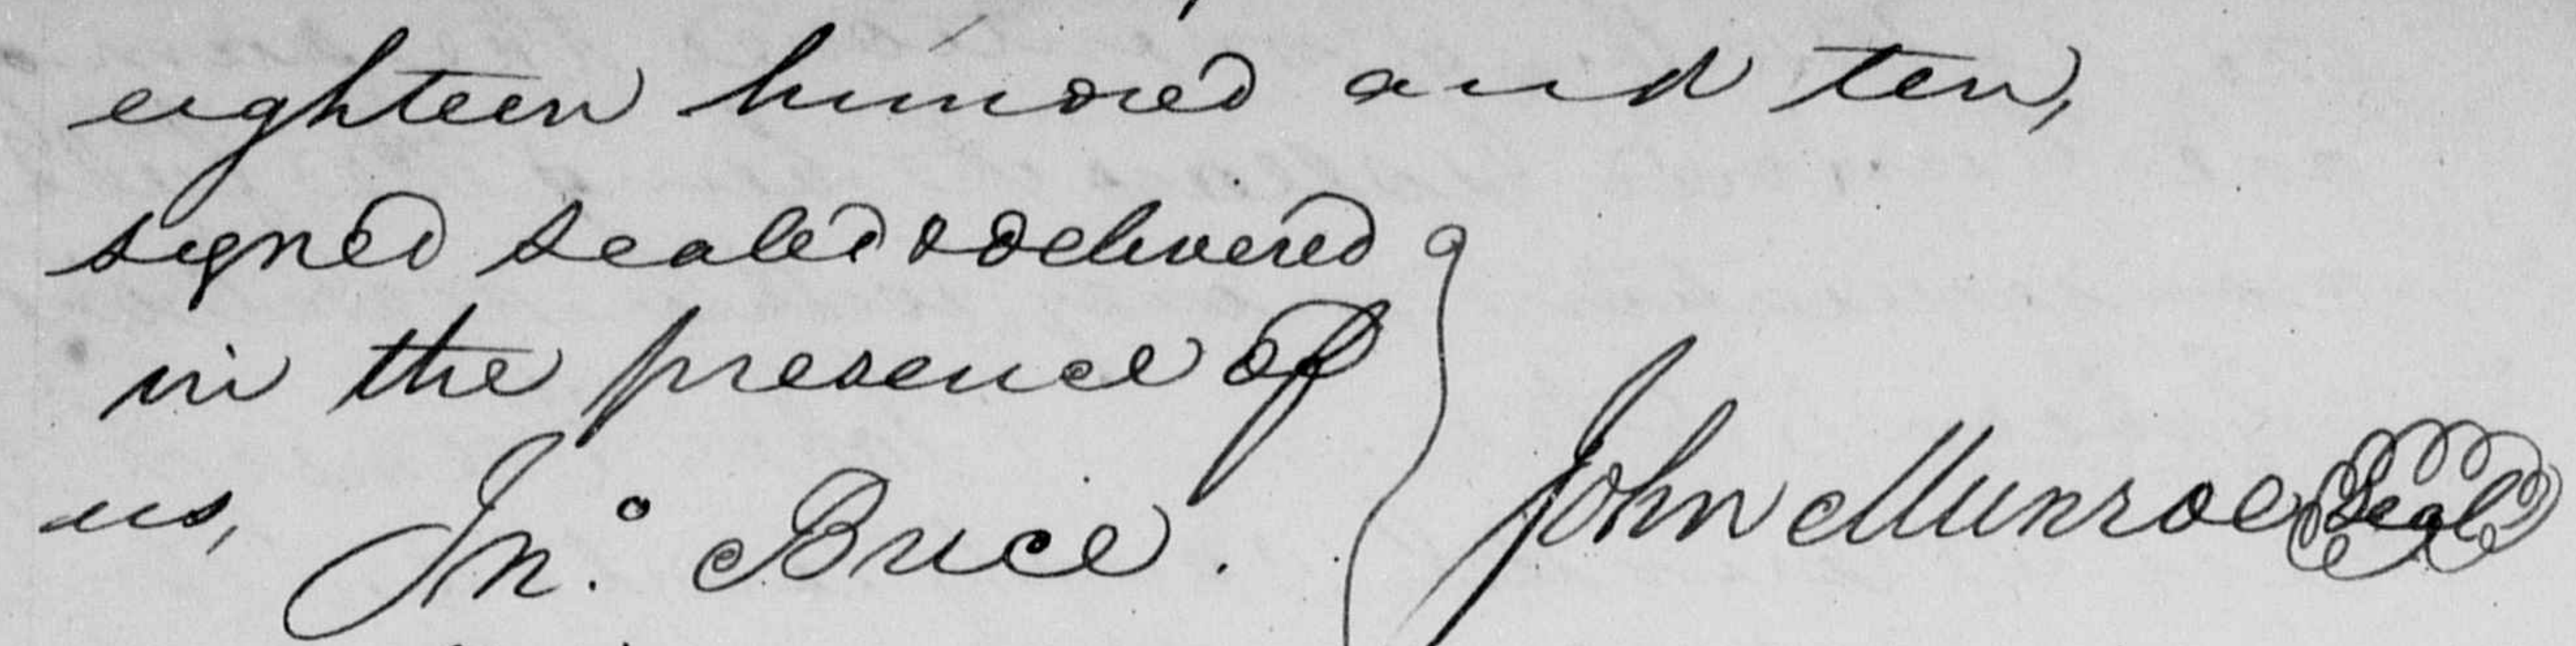 eighteen hundred and ten,
signed sealed & delivered
in the presence of
us, Jn.º Brice. John Munroe Seal